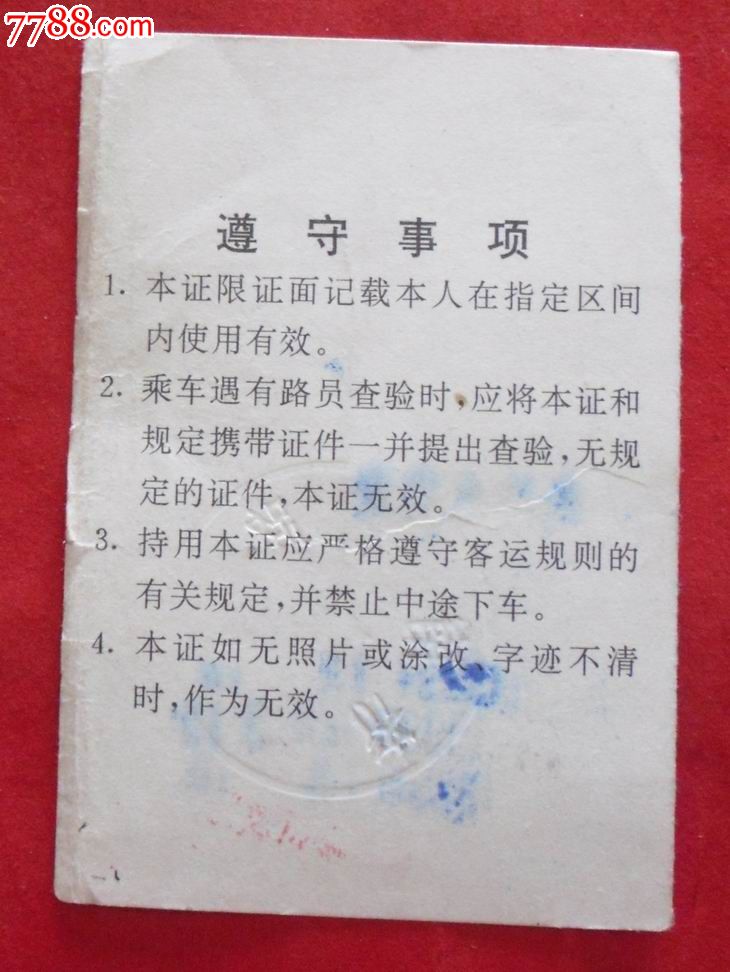 7788.com
遵守事项
1. 本证限证面记载本人在指定区间
内使用有效。
2. 乘车遇有路员查验时,应将本证和
规定携带证件一并提出查验,无规
定的证件,本证无效。
3. 持用本证应严格遵守客运规则的
有关规定,并禁止中途下车。
4. 本证如无照片或涂改、字迹不清
时,作为无效。